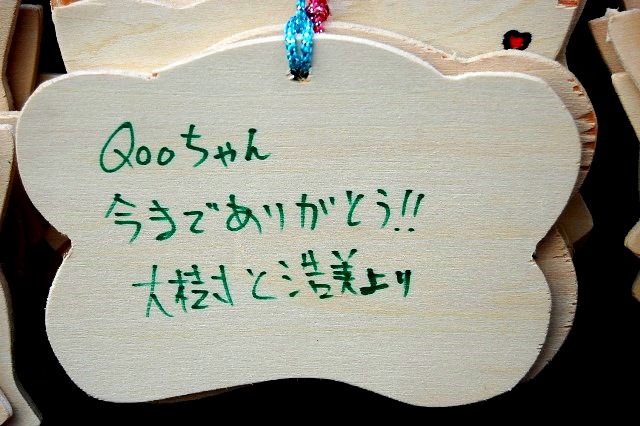 Qooちゃん
今までありがとう!!
大樹と浩美より